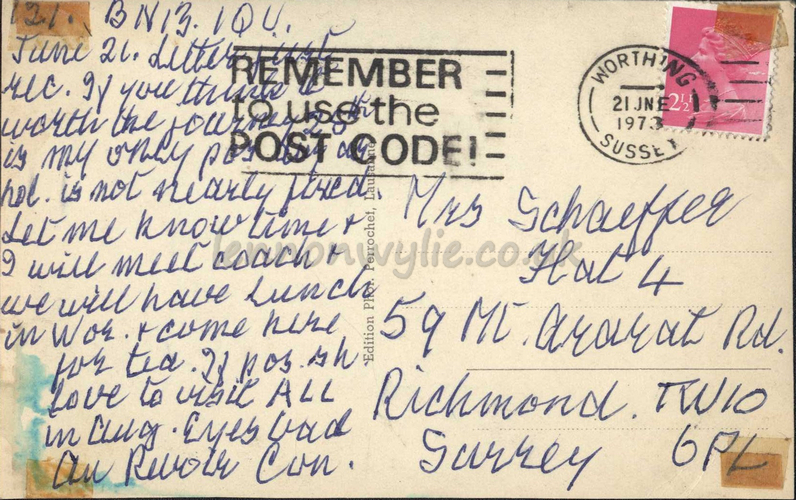 121. BN13. 1QU.
June 21. Letter just
rec. If you think it
worth the journey 28th
is my only pos. day as
hol. is not nearly fixed.
Let me know time +
I will meet coach +
we will have lunch
in Wor. + come here
for tea. If pos. sh
love to visit ALL
in Aug. Eyes bad
Au Revoir Con.
REMEMBER
to use the
POST CODE!
WORTHING
21 JNE
1973
SUSSEX
2½
Edition Phot. Perrochet, Lausanne
Mrs Schaeffer
Flat 4
59 Mt. Ararat Rd.
Richmond. TW10
Surrey 6PL
lennonwylie.co.uk